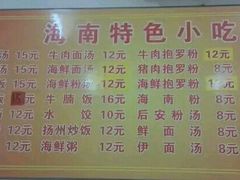 海南特色小吃
汤 15元 牛肉面汤 12元 牛肉抱罗粉 12元
汤 15元 海鲜面汤 12元 猪肉抱罗粉 8元
15元 海鲜炒粉 12元 海鲜抱罗粉 12元
15元 牛腩饭 16元 海南粉 8元
元 水饺 10元 后安粉汤 8元
元 扬州炒饭 12元 鲜面汤 8元
元 海鲜粥 12元 伊面汤 8元